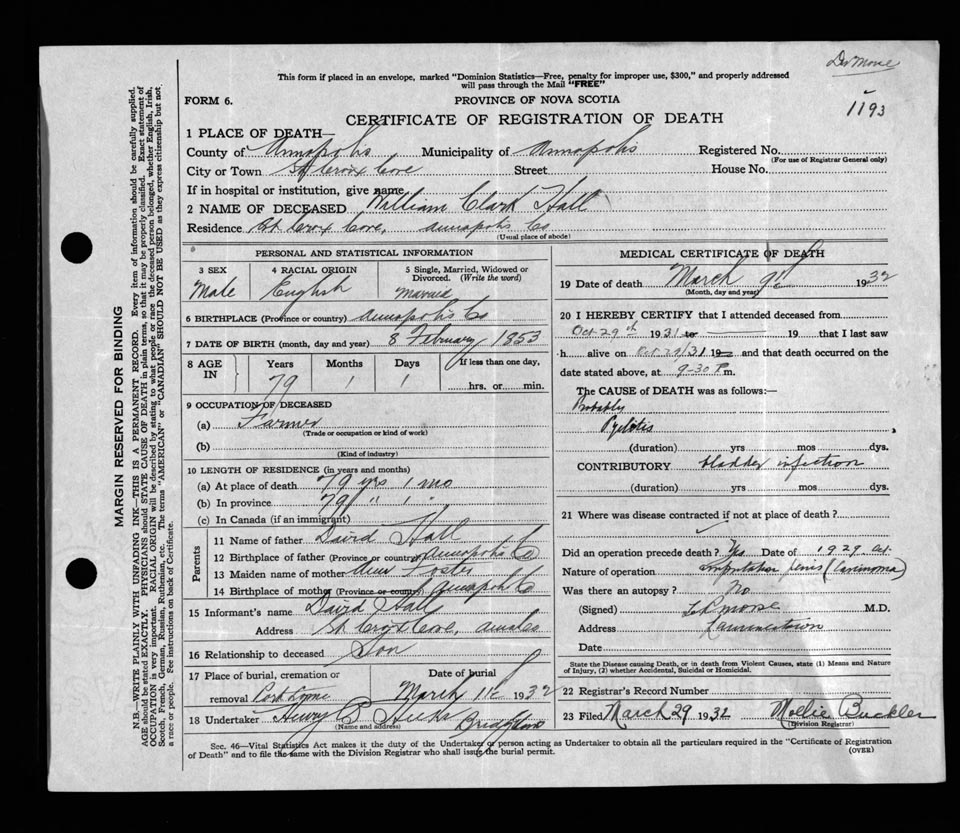 Dr Morse
1193
This form if placed in an envelope, marked "Dominion Statistics—Free, penalty for improper use, $300," and properly addressed
will pass through the Mail "FREE"
FORM 6.
PROVINCE OF NOVA SCOTIA
CERTIFICATE OF REGISTRATION OF DEATH
1 PLACE OF DEATH—
County of Annapolis Municipality of Annapolis Registered No.
(For use of Registrar General only)
City or Town St Croix Cove Street House No.
If in hospital or institution, give name
2 NAME OF DECEASED William Clark Hall
Residence St Croix Cove, Annapolis Co
(Usual place of abode)
PERSONAL AND STATISTICAL INFORMATION
3 SEX 4 RACIAL ORIGIN 5 Single, Married, Widowed or
Divorced. (Write the word)
Male English Married
6 BIRTHPLACE (Province or country) Annapolis Co
7 DATE OF BIRTH (month, day and year) 8 February 1853
8 AGE IN Years Months Days If less than one day,
79 1 1 hrs. or min.
9 OCCUPATION OF DECEASED
(a) Farmer
(Trade or occupation or kind of work)
(b)
(Kind of industry)
10 LENGTH OF RESIDENCE (in years and months)
(a) At place of death 79 yrs 1 mo
(b) In province 79 " 1 "
(c) In Canada (if an immigrant)
Parents
11 Name of father David Hall
12 Birthplace of father (Province or country) Annapolis Co
13 Maiden name of mother Foster
14 Birthplace of mother (Province or country) Annapolis Co
15 Informant's name David Hall
Address St Croix Cove, Anna Co
16 Relationship to deceased Son
17 Place of burial, cremation or Date of burial
removal Port Lorne March 11th 1932
18 Undertaker Henry Hicks Bridgetown
(Name and address)
MEDICAL CERTIFICATE OF DEATH
19 Date of death March 9th 1932
(Month, day and year)
20 I HEREBY CERTIFY that I attended deceased from
Oct 29th 1931 to 19 that I last saw
h alive on Oct 29/31 19 and that death occurred on the
date stated above, at 9-30 P m.
The CAUSE OF DEATH was as follows:
Probably
Pyelitis
(duration) yrs mos dys.
CONTRIBUTORY bladder infection
(duration) yrs mos dys.
21 Where was disease contracted if not at place of death?
Did an operation precede death? Yes Date of 1929 Oct.
Nature of operation Amputation penis (Carcinoma)
Was there an autopsy? No
(Signed) Morse M.D.
Address Lawrencetown
Date
State the Disease causing Death, or in death from Violent Causes, state (1) Means and Nature
of Injury, (2) whether Accidental, Suicidal or Homicidal.
22 Registrar's Record Number
23 Filed March 29 1932 Mollie Buckler
(Division Registrar)
Sec. 46—Vital Statistics Act makes it the duty of the Undertaker or person acting as Undertaker to obtain all the particulars required in the "Certificate of Registration
of Death" and to file the same with the Division Registrar who shall issue the burial permit.
(OVER)
MARGIN RESERVED FOR BINDING
N.B.—WRITE PLAINLY WITH UNFADING INK—THIS IS A PERMANENT RECORD. Every item of information should be carefully supplied.
AGE should be stated EXACTLY. PHYSICIANS should STATE CAUSE OF DEATH in plain terms, so that it may be properly classified. Exact statement of
OCCUPATION is very important. RACIAL ORIGIN will be described by stating to what people or race the deceased person belonged, whether English, Irish,
Scotch, French, German, Russian, Ruthenian, etc. The terms "AMERICAN" or "CANADIAN" SHOULD NOT BE USED as they express citizenship but not
a race or people. See instructions on back of Certificate.